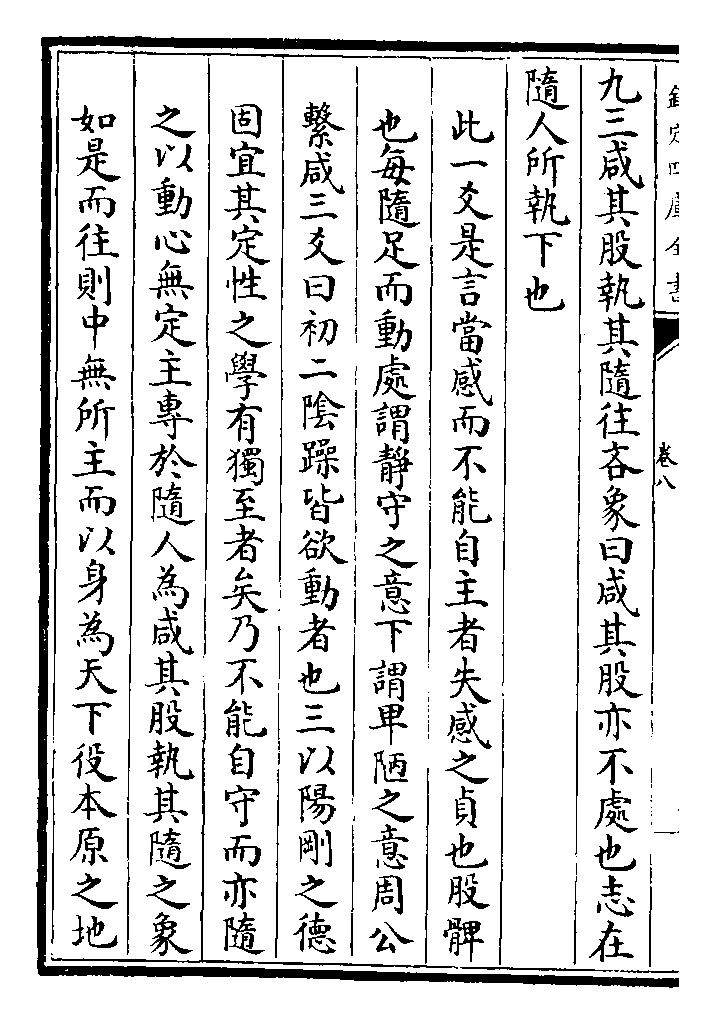 欽定四庫全書
卷八
九三咸其股執其隨往吝象曰咸其股亦不處也志在
隨人所執下也
此一爻是言當感而不能自主者失感之貞也股髀
也每隨足而動處謂靜守之意下謂卑陋之意周公
繫咸三爻曰初二陰躁皆欲動者也三以陽剛之德
固宜其定性之學有獨至者矣乃不能自守而亦隨
之以動心無定主專於隨人為咸其股執其隨之象
如是而往則中無所主而以身為天下役本原之地